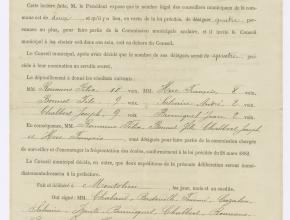 Cette lecture faite, M. le Président expose que le nombre légal des conseillers municipaux de la com-
mune est de douze et qu'il y a lieu, en vertu de la loi précitée, de désigner quatre per-
sonnes au plus, pour faire partie de la Commission municipale scolaire, et il invite le Conseil
municipal à les choisir soit dans son sein, soit en dehors du Conseil.
Le Conseil municipal, après avoir décidé que le nombre de ses délégués serait de quatre pro-
cède à leur nomination au scrutin secret.
Le dépouillement a donné les résultats suivants :
MM. Roumens Félix 10 voix. MM. Huc François 8 voix.
Bonnet Félix 9 voix. André 2 voix.
Chalbert Joseph 9 voix. Jean 2 voix.
En conséquence, MM. Roumens Félix, Bonnet Félix, Chalbert Joseph
et Huc François sont désignés pour faire partie de la commission chargée
de surveiller et d'encourager la fréquentation des écoles, conformément à la loi précitée du 28 mars 1882.
Le Conseil municipal décide, en outre, que deux expéditions de la présente délibération seront immé-
diatement adressées à la préfecture.
Fait et délibéré à Montolieu, les jour, mois et an susdits.
Ont signé MM.